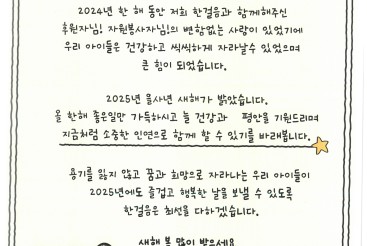 2024년 한 해 동안 저희 한걸음과 함께해주신
후원자님! 자원봉사자님!의 변함없는 사랑이 있었기에
우리 아이들은 건강하고 씩씩하게 자라날수 있었으며
큰 힘이 되었습니다.
2025년 을사년 새해가 밝았습니다.
올 한해 좋은일만 가득하시고 늘 건강과 평안을 기원드리며
지금처럼 소중한 인연으로 함께 할 수 있기를 바래봅니다.
용기를 잃지 않고 꿈과 희망으로 자라나는 우리 아이들이
2025년에도 즐겁고 행복한 날을 보낼 수 있도록
한걸음은 최선을 다하겠습니다.
새해 복 많이 받으세요